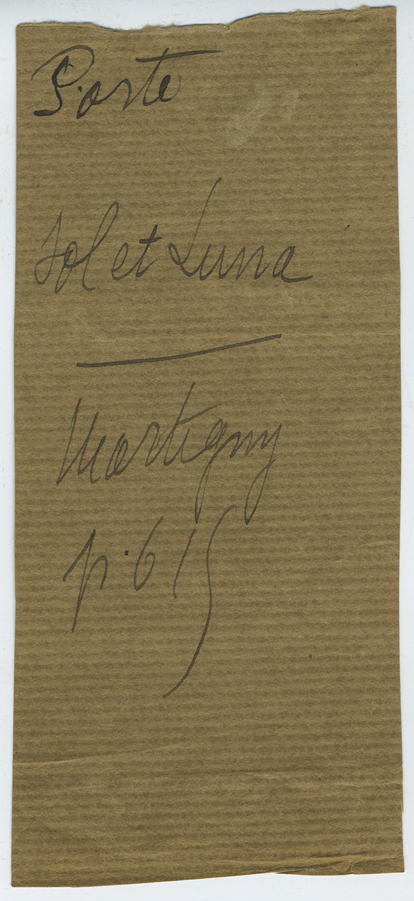 Porte
Sol et Luna
Martigny
p. 615